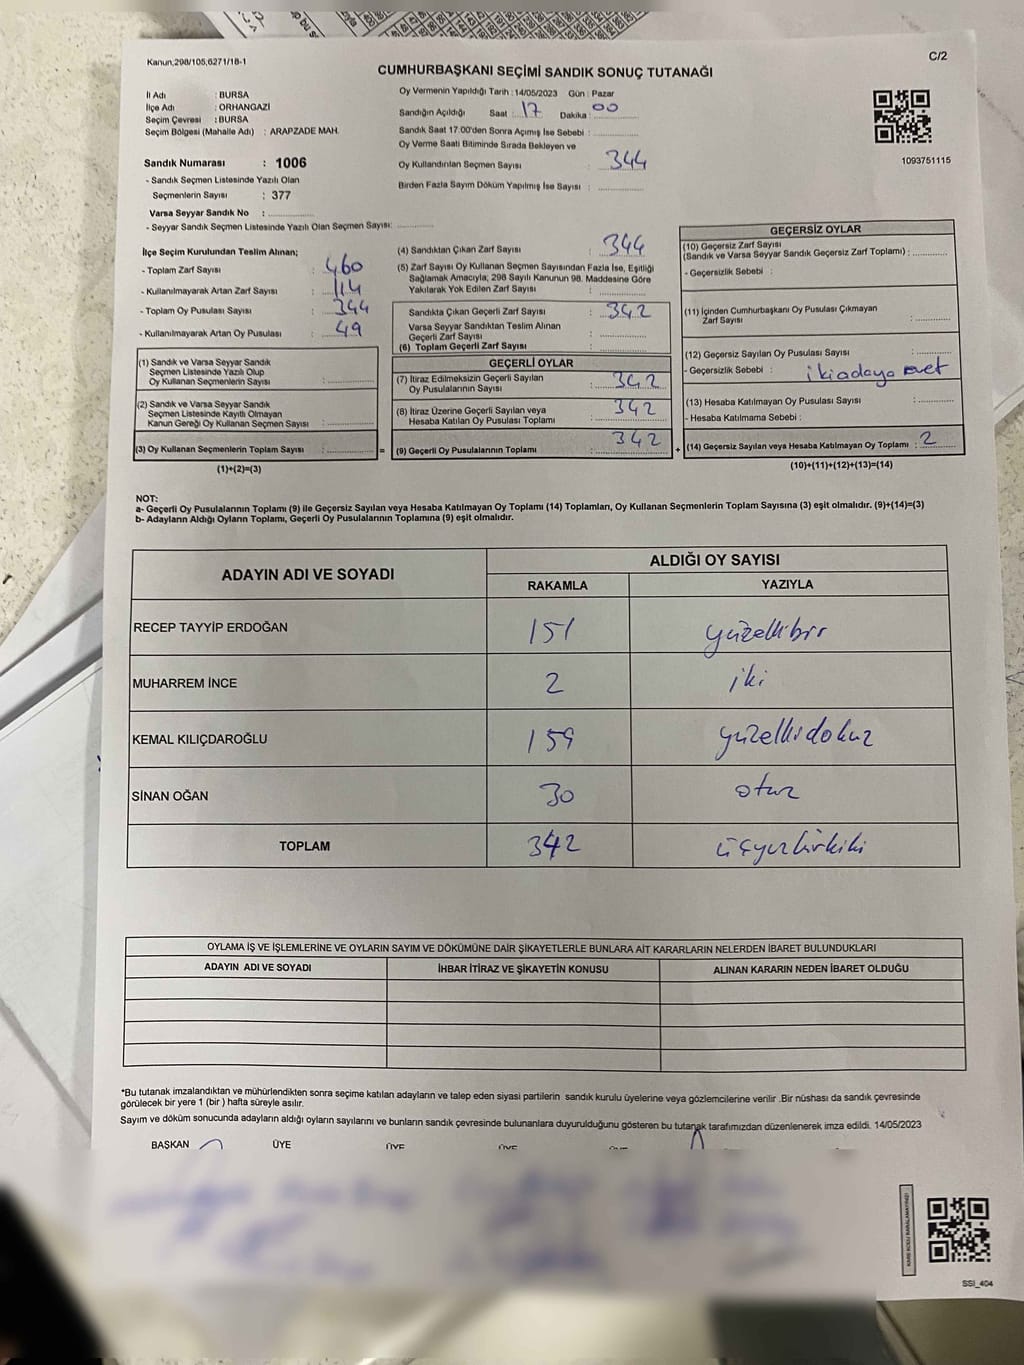 Kanun,298/105,6271/18-1
C/2
CUMHURBAŞKANI SEÇİMİ SANDIK SONUÇ TUTANAĞI
İl Adı : BURSA
İlçe Adı : ORHANGAZİ
Seçim Çevresi : BURSA
Seçim Bölgesi (Mahalle Adı) : ARAPZADE MAH.
Sandık Numarası : 1006
- Sandık Seçmen Listesinde Yazılı Olan
Seçmenlerin Sayısı : 377
Varsa Seyyar Sandık No :
- Seyyar Sandık Seçmen Listesinde Yazılı Olan Seçmen Sayısı:
Oy Vermenin Yapıldığı Tarih : 14/05/2023 Gün : Pazar
Sandığın Açıldığı Saat : 17 Dakika : 00
Sandık Saat 17:00'den Sonra Açımış İse Sebebi :
Oy Verme Saati Bitiminde Sırada Bekleyen ve
Oy Kullandırılan Seçmen Sayısı : 344
Birden Fazla Sayım Döküm Yapılmış İse Sayısı :
1093751115
İlçe Seçim Kurulundan Teslim Alınan;
- Toplam Zarf Sayısı : 460
- Kullanılmayarak Artan Zarf Sayısı : 114
- Toplam Oy Pusulası Sayısı : 344
- Kullanılmayarak Artan Oy Pusulası : 49
(1) Sandık ve Varsa Seyyar Sandık
Seçmen Listesinde Yazılı Olup
Oy Kullanan Seçmenlerin Sayısı :
(2) Sandık ve Varsa Seyyar Sandık
Seçmen Listesinde Kayıtlı Olmayan
Kanun Gereği Oy Kullanan Seçmen Sayısı :
(3) Oy Kullanan Seçmenlerin Toplam Sayısı : =
(1)+(2)=(3)
(4) Sandıktan Çıkan Zarf Sayısı : 344
(5) Zarf Sayısı Oy Kullanan Seçmen Sayısından Fazla İse, Eşitliği
Sağlamak Amacıyla; 298 Sayılı Kanunun 98. Maddesine Göre
Yakılarak Yok Edilen Zarf Sayısı :
Sandıkta Çıkan Geçerli Zarf Sayısı : 342
Varsa Seyyar Sandıktan Teslim Alınan
Geçerli Zarf Sayısı :
(6) Toplam Geçerli Zarf Sayısı :
GEÇERLİ OYLAR
(7) İtiraz Edilmeksizin Geçerli Sayılan
Oy Pusulalarının Sayısı : 342
(8) İtiraz Üzerine Geçerli Sayılan veya
Hesaba Katılan Oy Pusulası Toplamı : 342
(9) Geçerli Oy Pusulalarının Toplamı : 342 +
GEÇERSİZ OYLAR
(10) Geçersiz Zarf Sayısı
(Sandık ve Varsa Seyyar Sandık Geçersiz Zarf Toplamı) :
- Geçersizlik Sebebi :
(11) İçinden Cumhurbaşkanı Oy Pusulası Çıkmayan
Zarf Sayısı :
(12) Geçersiz Sayılan Oy Pusulası Sayısı :
- Geçersizlik Sebebi : iki adaya evet
(13) Hesaba Katılmayan Oy Pusulası Sayısı :
- Hesaba Katılmama Sebebi :
(14) Geçersiz Sayılan veya Hesaba Katılmayan Oy Toplamı : 2
(10)+(11)+(12)+(13)=(14)
NOT:
a- Geçerli Oy Pusulalarının Toplamı (9) ile Geçersiz Sayılan veya Hesaba Katılmayan Oy Toplamı (14) Toplamları, Oy Kullanan Seçmenlerin Toplam Sayısına (3) eşit olmalıdır. (9)+(14)=(3)
b- Adayların Aldığı Oyların Toplamı, Geçerli Oy Pusulalarının Toplamına (9) eşit olmalıdır.
ADAYIN ADI VE SOYADI ALDIĞI OY SAYISI
RAKAMLA YAZIYLA
RECEP TAYYİP ERDOĞAN 151 yüzellibir
MUHARREM İNCE 2 iki
KEMAL KILIÇDAROĞLU 159 yüzellidokuz
SİNAN OĞAN 30 otuz
TOPLAM 342 üçyüzkırkiki
OYLAMA İŞ VE İŞLEMLERİNE VE OYLARIN SAYIM VE DÖKÜMÜNE DAİR ŞİKAYETLERLE BUNLARA AİT KARARLARIN NELERDEN İBARET BULUNDUKLARI
ADAYIN ADI VE SOYADI İHBAR İTİRAZ VE ŞİKAYETİN KONUSU ALINAN KARARIN NEDEN İBARET OLDUĞU
*Bu tutanak imzalandıktan ve mühürlendikten sonra seçime katılan adayların ve talep eden siyasi partilerin sandık kurulu üyelerine veya gözlemcilerine verilir .Bir nüshası da sandık çevresinde
görülecek bir yere 1 (bir ) hafta süreyle asılır.
Sayım ve döküm sonucunda adayların aldığı oyların sayılarını ve bunların sandık çevresinde bulunanlara duyurulduğunu gösteren bu tutanak tarafımızdan düzenlenerek imza edildi. 14/05/2023
BAŞKAN ÜYE ÜYE ÜYE
SSI_404